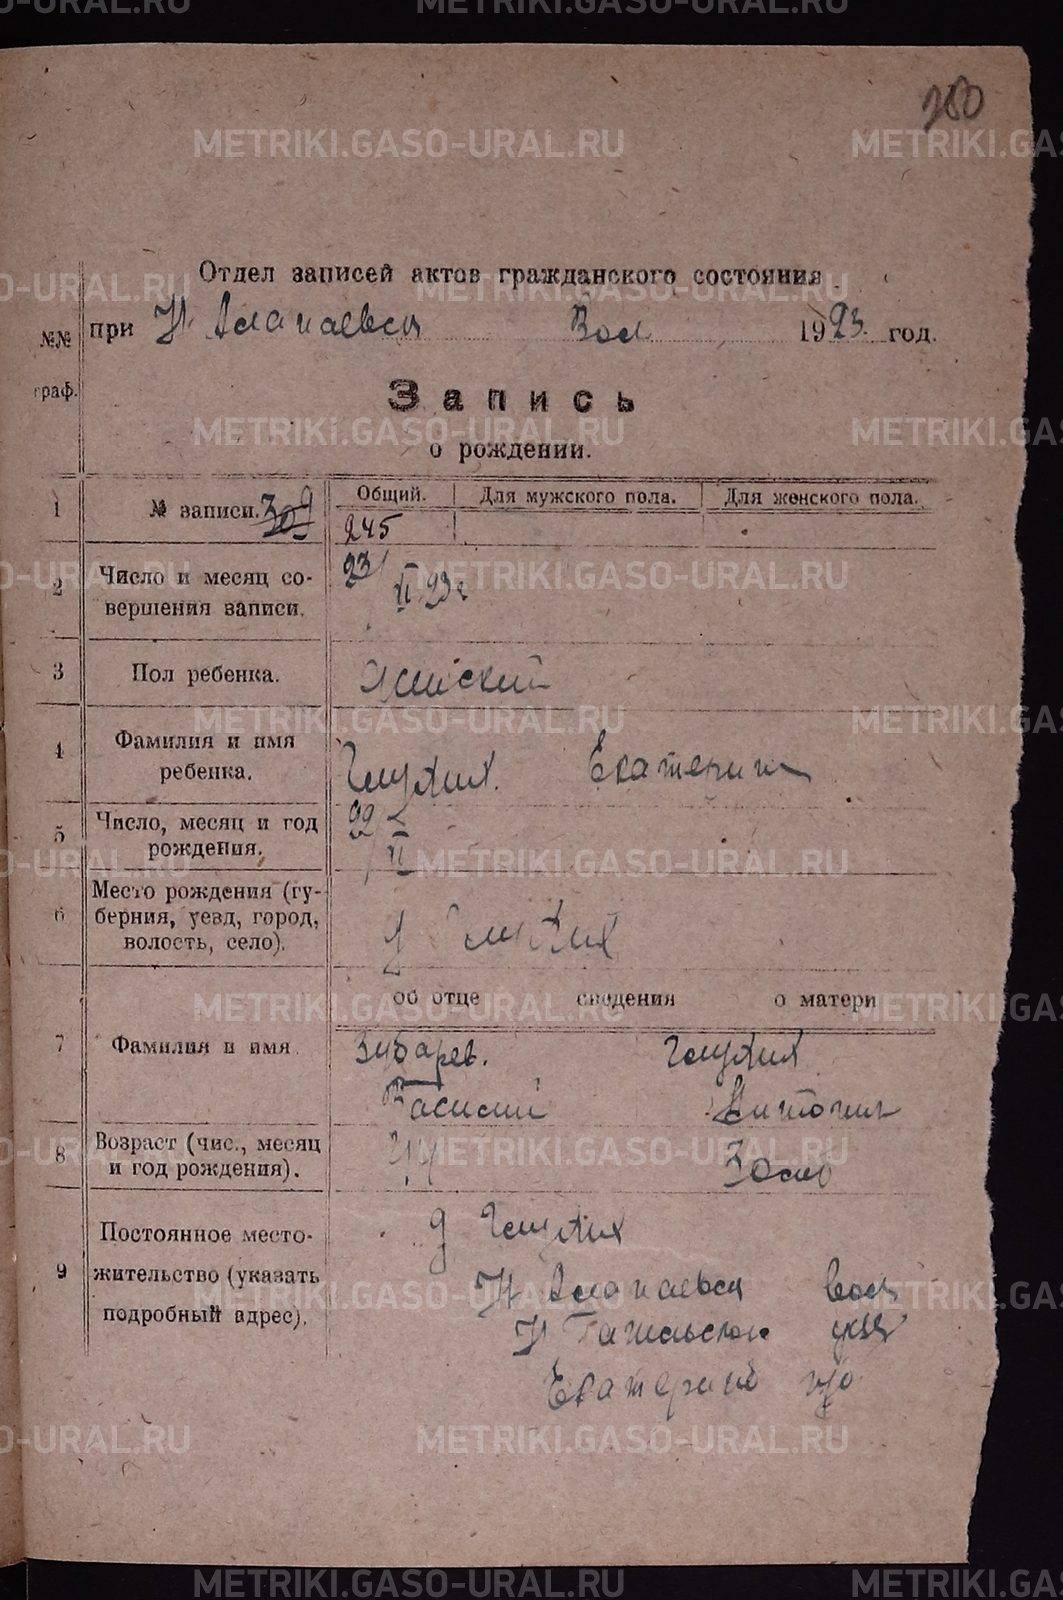 280
Отдел записей актов гражданского состояния
при Н Алапаевск Вол 1923 год.
№№ граф.
Запись
о рождении.
1 № записи. 309
Общий. Для мужского пола. Для женского пола.
245
2 Число и месяц совершения записи. 23/VI 23 г
3 Пол ребенка. Женский
4 Фамилия и имя ребенка. Глухих. Екатерина
5 Число, месяц и год рождения. 22/VI
6 Место рождения (губерния, уезд, город, волость, село). д Глухих
об отце сведения о матери
7 Фамилия и имя Зубарев. Глухих
Василий
8 Возраст (чис., месяц и год рождения).
9 Постоянное местожительство (указать подробный адрес). д Глухих
Н Алапаевск вол
Н Тагильског уезд
Екатеринб губ
METRIKI.GASO-URAL.RU